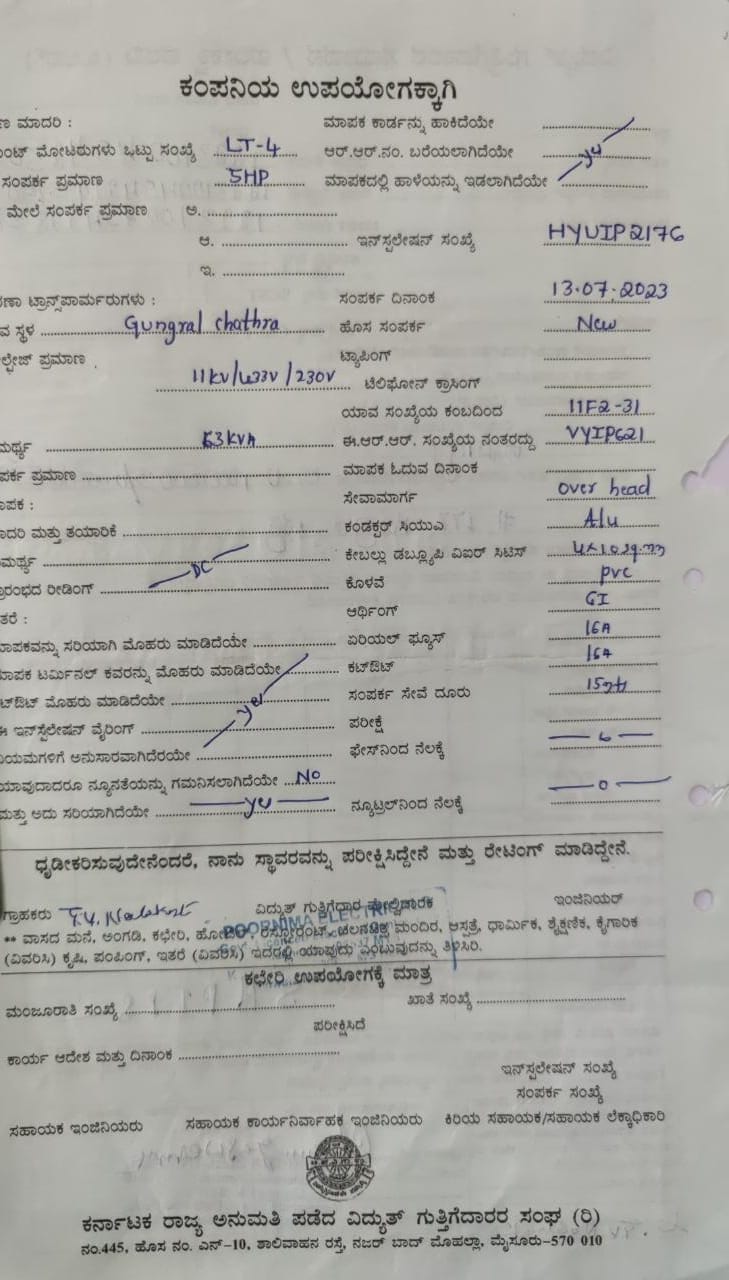 ಕಂಪನಿಯ ಉಪಯೋಗಕ್ಕಾಗಿ
ಮಾದರಿ : ಮಾಪಕ ಕಾರ್ಡನ್ನು ಹಾಕಿದೆಯೇ
ಮೋಟರುಗಳು ಒಟ್ಟು ಸಂಖ್ಯೆ LT-4 ಆರ್.ಆರ್.ನಂ. ಬರೆಯಲಾಗಿದೆಯೇ yes
ಸಂಪರ್ಕ ಪ್ರಮಾಣ 5HP ಮಾಪಕದಲ್ಲಿ ಹಾಳೆಯನ್ನು ಇಡಲಾಗಿದೆಯೇ
ಮೇಲೆ ಸಂಪರ್ಕ ಪ್ರಮಾಣ ಅ.
ಆ. ಇನ್‌ಸ್ಪಲೇಷನ್ ಸಂಖ್ಯೆ HYUIP2176
ಇ.
ಟ್ರಾನ್ಸ್‌ಪಾರ್ಮರುಗಳು : ಸಂಪರ್ಕ ದಿನಾಂಕ 13.07.2023
ಸ್ಥಳ Gungral chathra ಹೊಸ ಸಂಪರ್ಕ New
ಪ್ರಮಾಣ ಟ್ಯಾಪಿಂಗ್
11KV/433V/230V ಟೆಲಿಫೋನ್ ಕ್ರಾಸಿಂಗ್
ಯಾವ ಸಂಖ್ಯೆಯ ಕಂಬದಿಂದ 11F2-31
63KVA ಈ.ಆರ್.ಆರ್. ಸಂಖ್ಯೆಯ ನಂತರದ್ದು VYIP621
ಪ್ರಮಾಣ ಮಾಪಕ ಓದುವ ದಿನಾಂಕ
ಸೇವಾಮಾರ್ಗ over head
ಮತ್ತು ತಯಾರಿಕೆ ಕಂಡಕ್ಟರ್ ಸಿಯುಎ Alu
DC ಕೇಬಲ್ಲು ಡಬ್ಲ್ಯೂಪಿ ವಿಐರ್ ಸಿಟಿಸ್ 4x10sq.mm
ರೀಡಿಂಗ್ ಕೊಳವೆ PVC
ಆರ್ಥಿಂಗ್ GI
ಸರಿಯಾಗಿ ಮೊಹರು ಮಾಡಿದೆಯೇ ಏರಿಯಲ್ ಫ್ಯೂಸ್ 16A
ಟರ್ಮಿನಲ್ ಕವರನ್ನು ಮೊಹರು ಮಾಡಿದೆಯೇ ಕಟ್‌ಔಟ್ 16A
ಮೊಹರು ಮಾಡಿದೆಯೇ yes ಸಂಪರ್ಕ ಸೇವೆ ದೂರು 15mt
ಇನ್‌ಸ್ಪೆಲೇಷನ್ ವೈರಿಂಗ್ ಪರೀಕ್ಷೆ
ಅನುಸಾರವಾಗಿದೆರಯೇ ಫೇಸ್‌ನಿಂದ ನೆಲಕ್ಕೆ
ನ್ಯೂನತೆಯನ್ನು ಗಮನಿಸಲಾಗಿದೆಯೇ No
ಮತ್ತು ಅದು ಸರಿಯಾಗಿದೆಯೇ yes ನ್ಯೂಟ್ರಲ್‌ನಿಂದ ನೆಲಕ್ಕೆ 0
ಧೃಡೀಕರಿಸುವುದೇನೆಂದರೆ, ನಾನು ಸ್ಥಾವರವನ್ನು ಪರೀಕ್ಷಿಸಿದ್ದೇನೆ ಮತ್ತು ರೇಟಿಂಗ್ ಮಾಡಿದ್ದೇನೆ.
ಗ್ರಾಹಕರು ವಿದ್ಯುತ್ ಗುತ್ತಿಗೆದಾರ ಮೇಲ್ವಿಚಾರಕ ಇಂಜಿನಿಯರ್
POORNIMA ELECTRIC
** ವಾಸದ ಮನೆ, ಅಂಗಡಿ, ಕಛೇರಿ, ಹೋಟೆಲ್, ರೆಸ್ಟೋರೆಂಟ್, ಚಲನಚಿತ್ರ ಮಂದಿರ, ಆಸ್ಪತ್ರೆ, ಧಾರ್ಮಿಕ, ಶೈಕ್ಷಣಿಕ, ಕೈಗಾರಿಕ
(ವಿವರಿಸಿ) ಕೃಷಿ, ಪಂಪಿಂಗ್, ಇತರೆ (ವಿವರಿಸಿ) ಇದರಲ್ಲಿ ಯಾವುದು ಎಂಬುವುದನ್ನು ತಿಳಿಸಿರಿ.
ಕಛೇರಿ ಉಪಯೋಗಕ್ಕೆ ಮಾತ್ರ
ಮಂಜೂರಾತಿ ಸಂಖ್ಯೆ ಖಾತೆ ಸಂಖ್ಯೆ
ಪರೀಕ್ಷಿಸಿದೆ
ಕಾರ್ಯ ಆದೇಶ ಮತ್ತು ದಿನಾಂಕ
ಇನ್‌ಸ್ಪಲೇಷನ್ ಸಂಖ್ಯೆ
ಸಂಪರ್ಕ ಸಂಖ್ಯೆ
ಸಹಾಯಕ ಇಂಜಿನಿಯರು ಸಹಾಯಕ ಕಾರ್ಯನಿರ್ವಾಹಕ ಇಂಜಿನಿಯರು ಕಿರಿಯ ಸಹಾಯಕ/ಸಹಾಯಕ ಲೆಕ್ಕಾಧಿಕಾರಿ
ಕರ್ನಾಟಕ ರಾಜ್ಯ ಅನುಮತಿ ಪಡೆದ ವಿದ್ಯುತ್ ಗುತ್ತಿಗೆದಾರರ ಸಂಘ (ರಿ)
ನಂ.445, ಹೊಸ ನಂ. ಎನ್-10, ಶಾಲಿವಾಹನ ರಸ್ತೆ, ನಜರ್ ಬಾದ್ ಮೊಹಲ್ಲಾ, ಮೈಸೂರು-570 010